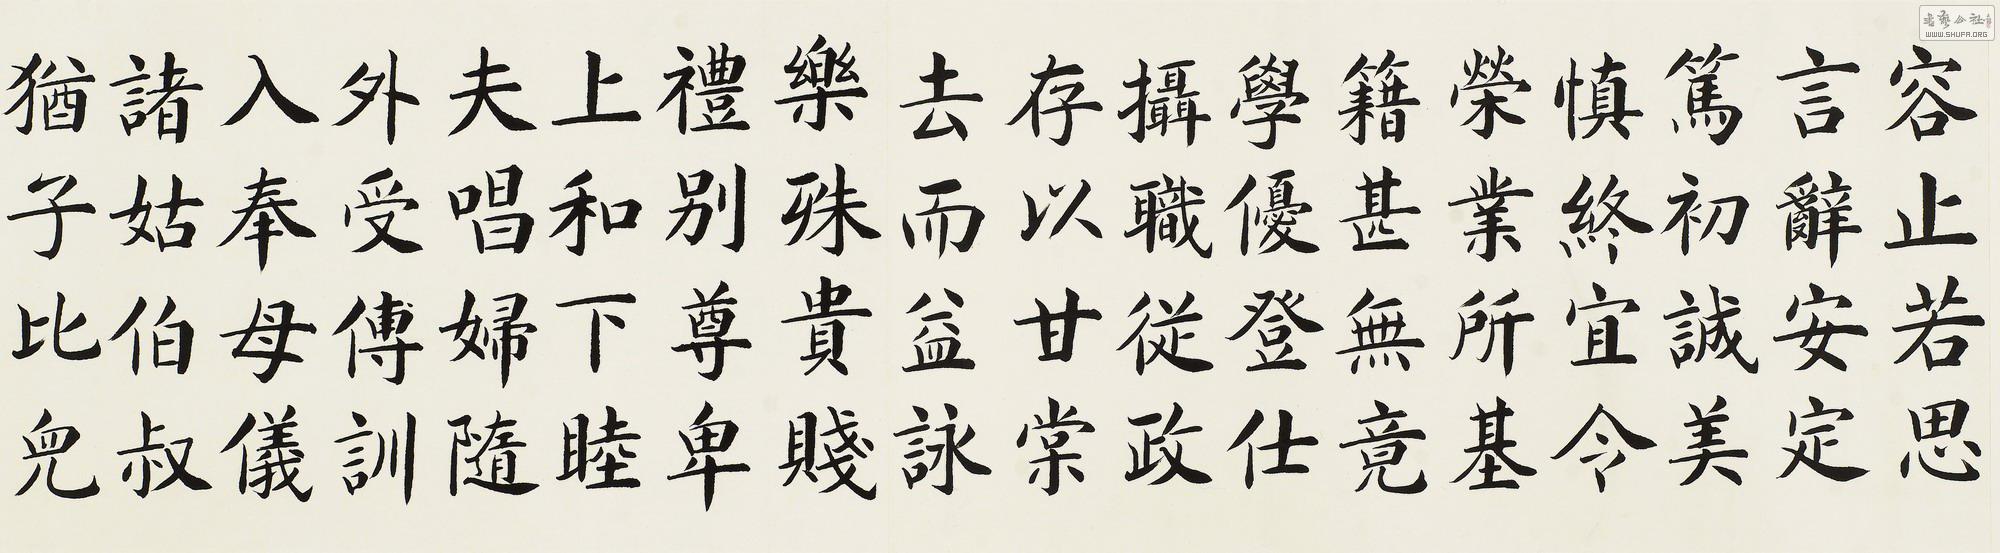 容止若思
言辭安定
篤初誠美
慎終宜令
榮業所基
籍甚無竟
學優登仕
攝職從政
存以甘棠
去而益詠
樂殊貴賤
禮別尊卑
上和下睦
夫唱婦隨
外受傅訓
入奉母儀
諸姑伯叔
猶子比兒
WWW.SHUFA.ORG